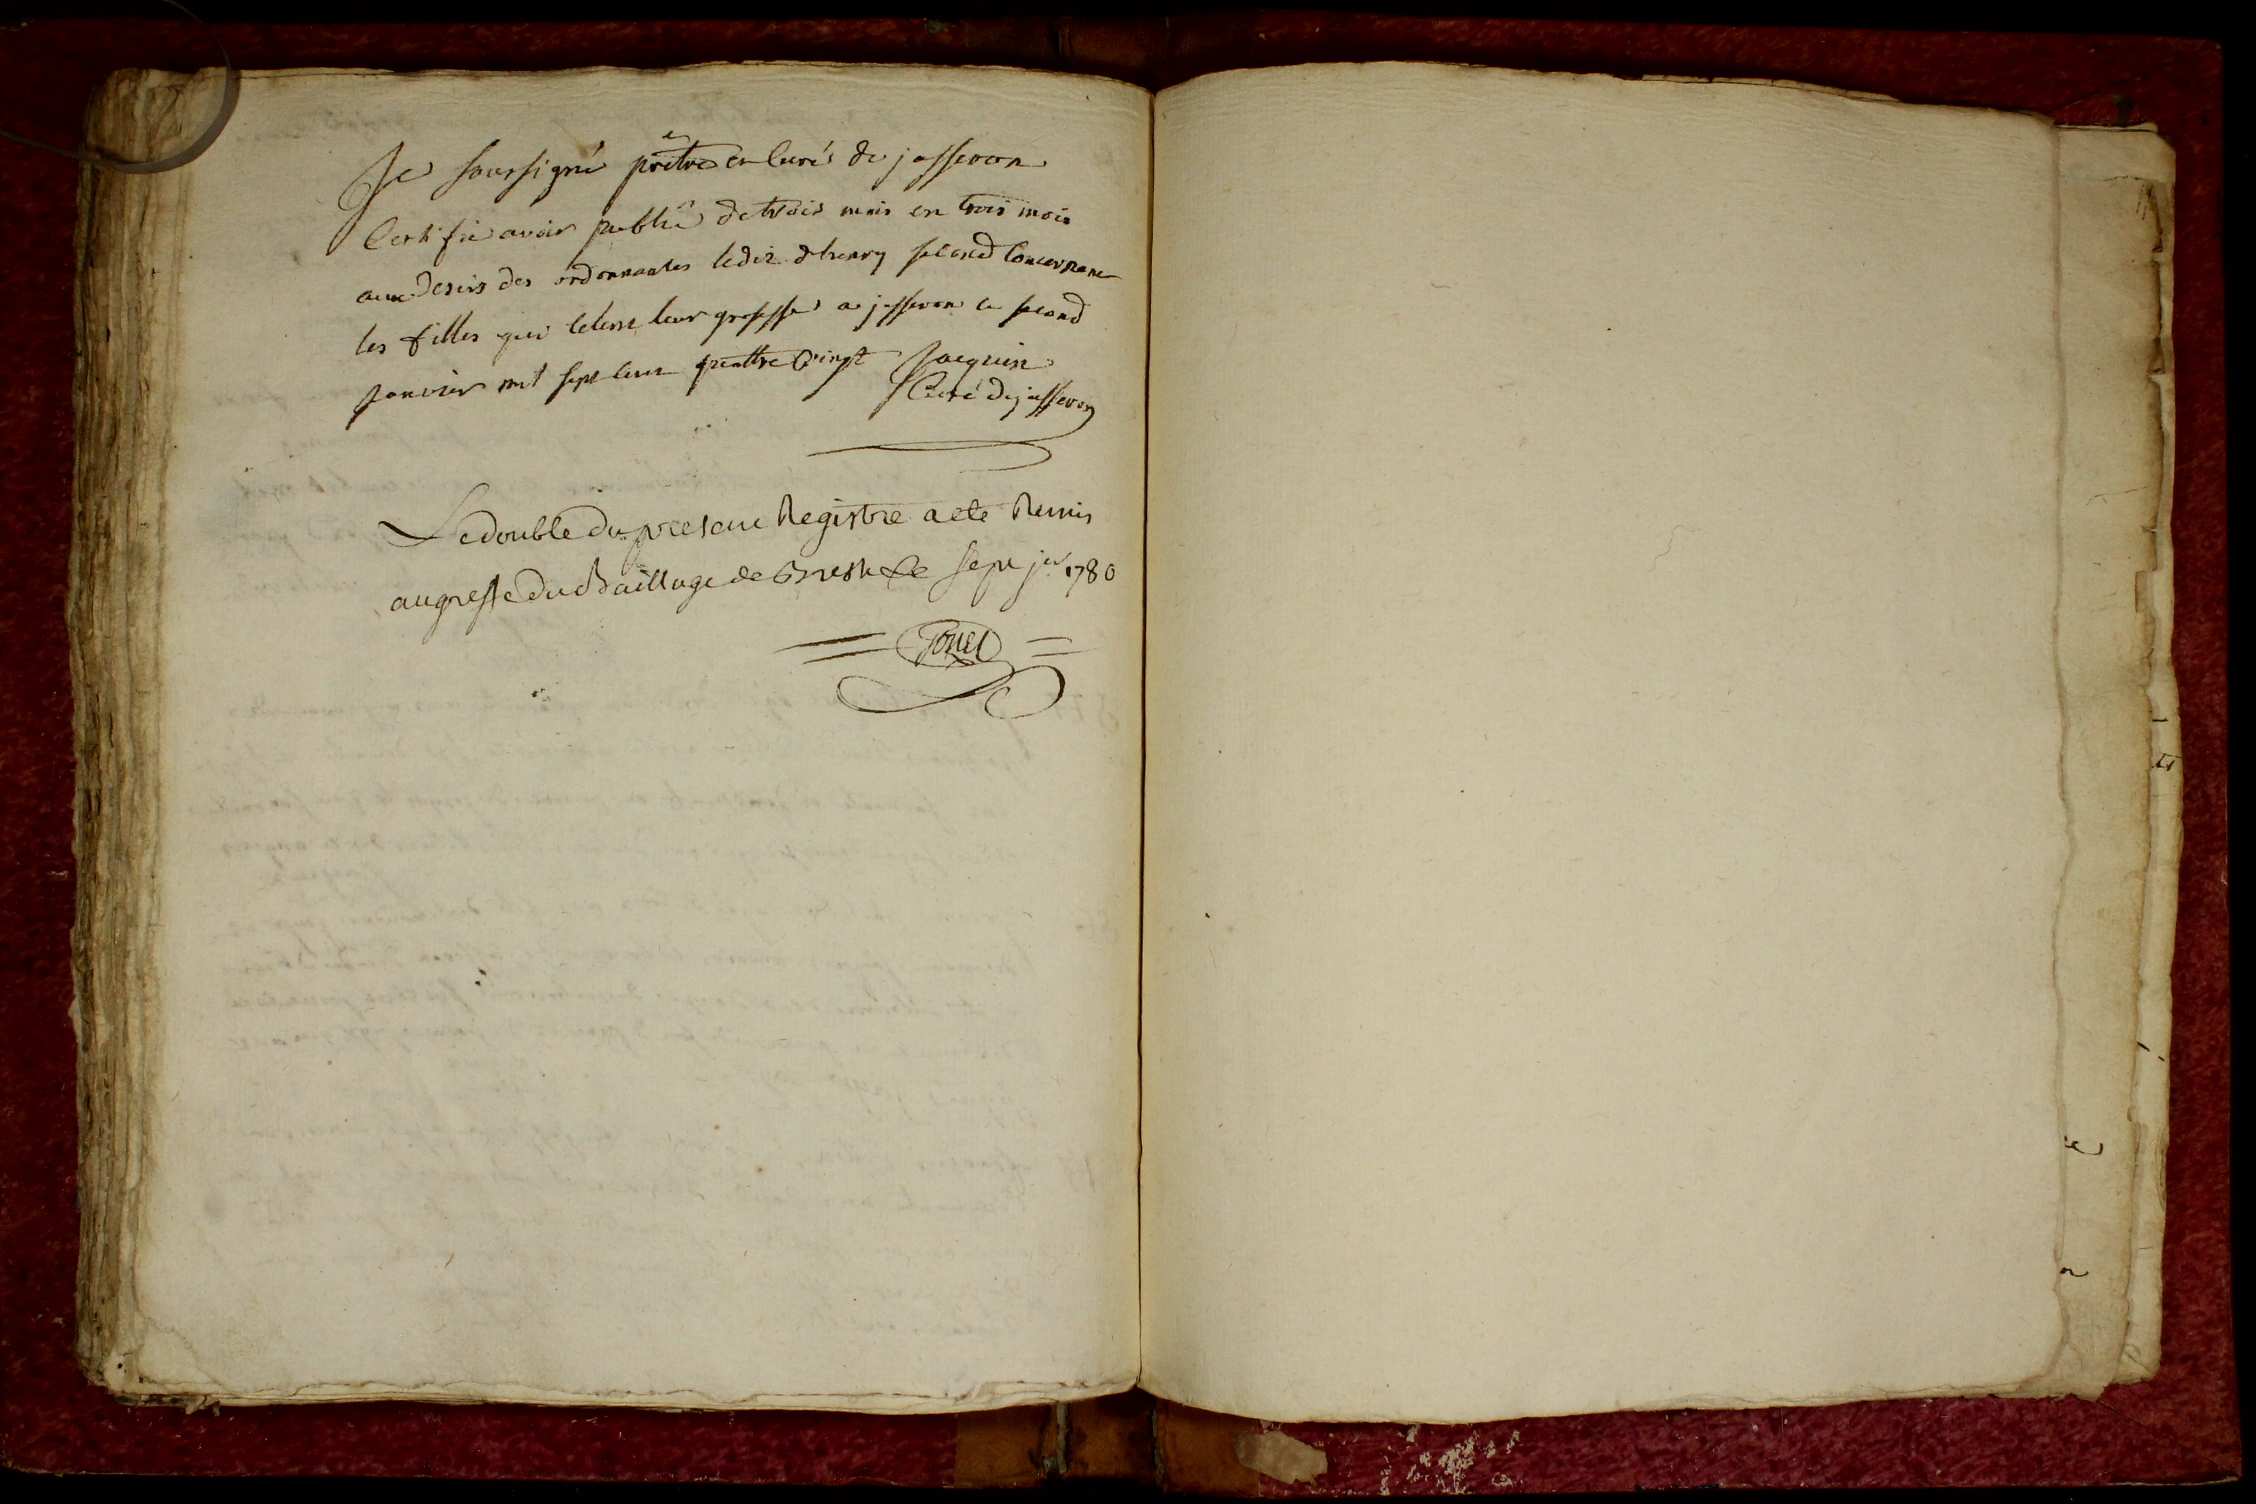 Je soussigné prêtre et curé de jasseron
Certifie avoir publié de trois mois en trois mois
aux desirs des ordonnances ledit d'henry second Concernant
les filles qui celent leur grossesse a jasseron ce second
janvier mil sept cent quattre vingt Jacquin
Curé de jasseron
Le double du present Registre a eté Remis
au greffe du Bailliage de Bresse le sept jer 1780